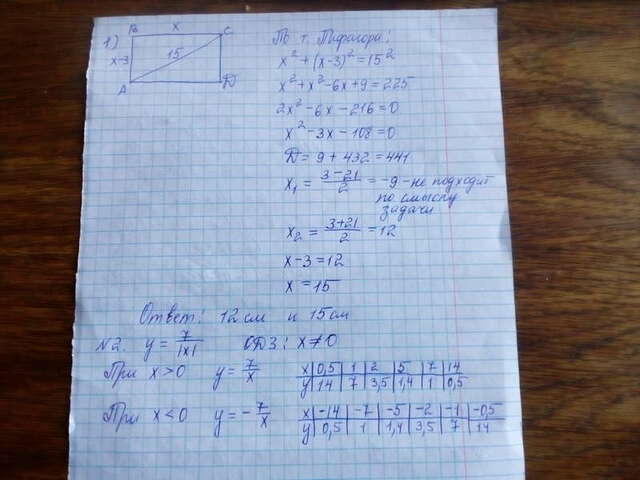 1)
B x C
x-3 15
A D
По т. Пифагора:
x² + (x-3)² = 15²
x² + x² - 6x + 9 = 225
2x² - 6x - 216 = 0
x² - 3x - 108 = 0
D = 9 + 432 = 441
x₁ = (3-21)/2 = -9 - не подходит
по смыслу
задачи
x₂ = (3+21)/2 = 12
x - 3 = 12
x = 15
Ответ: 12 см и 15 см
N2. y = 7/|x| ОДЗ: x ≠ 0
При x > 0 y = 7/x x 0,5 1 2 5 7 14
y 14 7 3,5 1,4 1 0,5
При x < 0 y = -7/x x -14 -7 -5 -2 -1 -0,5
y 0,5 1 1,4 3,5 7 14